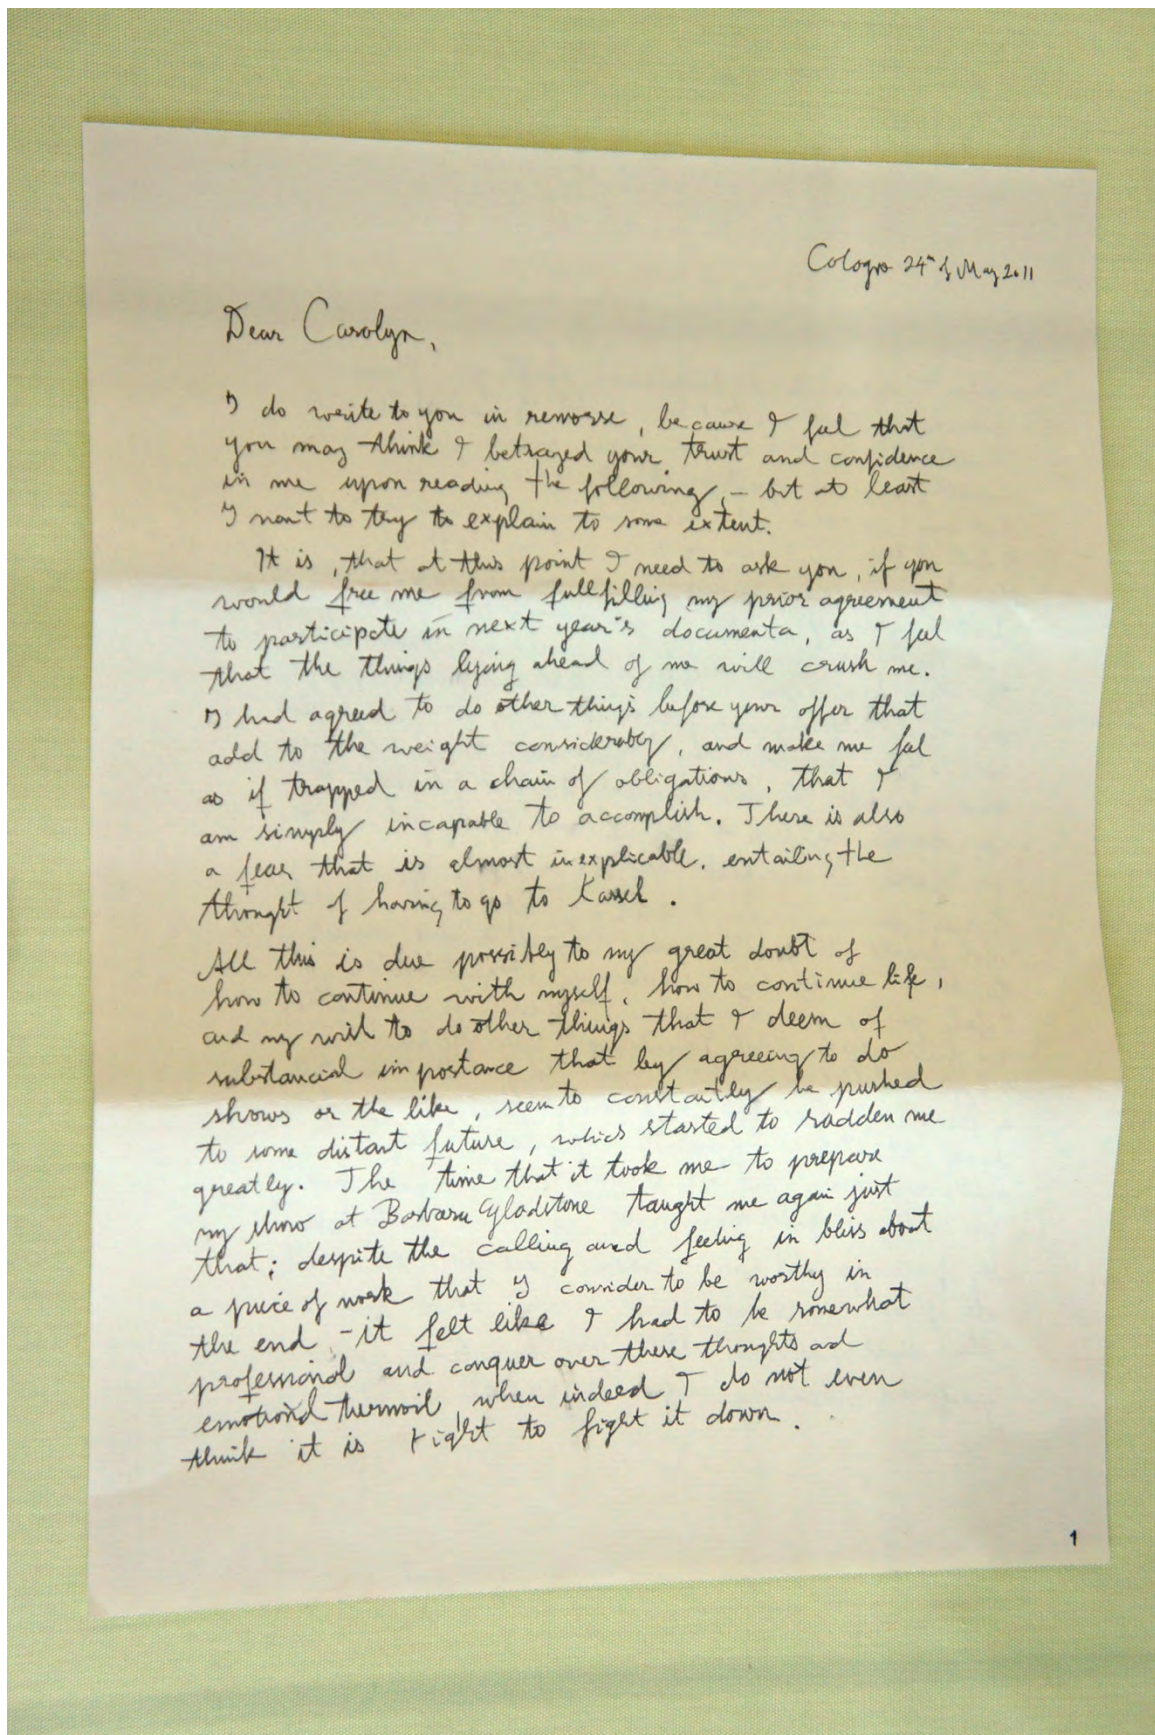 Cologne 24th of May 2011
Dear Carolyn,
I do write to you in remorse, because I feel that
you may think I betrayed your trust and confidence
in me upon reading the following, – but at least
I want to try to explain to some extent.
It is, that at this point I need to ask you, if you
would free me from fullfilling my prior agreement
to participate in next year's documenta, as I feel
that the things lying ahead of me will crush me.
I had agreed to do other things before your offer that
add to the weight considerably, and make me feel
as if trapped in a chain of obligations, that I
am simply incapable to accomplish. There is also
a fear that is almost inexplicable, entailing the
thought of having to go to Kassel.
All this is due possibly to my great doubt of
how to continue with myself, how to continue life,
and my wish to do other things that I deem of
substancial importance that by agreeing to do
shows or the like, seem to constantly be pushed
to some distant future, which started to sadden me
greatly. The time that it took me to prepare
my show at Barbara Gladstone taught me again just
that; despite the calling and feeling in bliss about
a piece of work that I consider to be worthy in
the end – it felt like I had to be somewhat
professional and conquer over these thoughts and
emotional thermoil, when indeed I do not even
think it is right to fight it down.
1